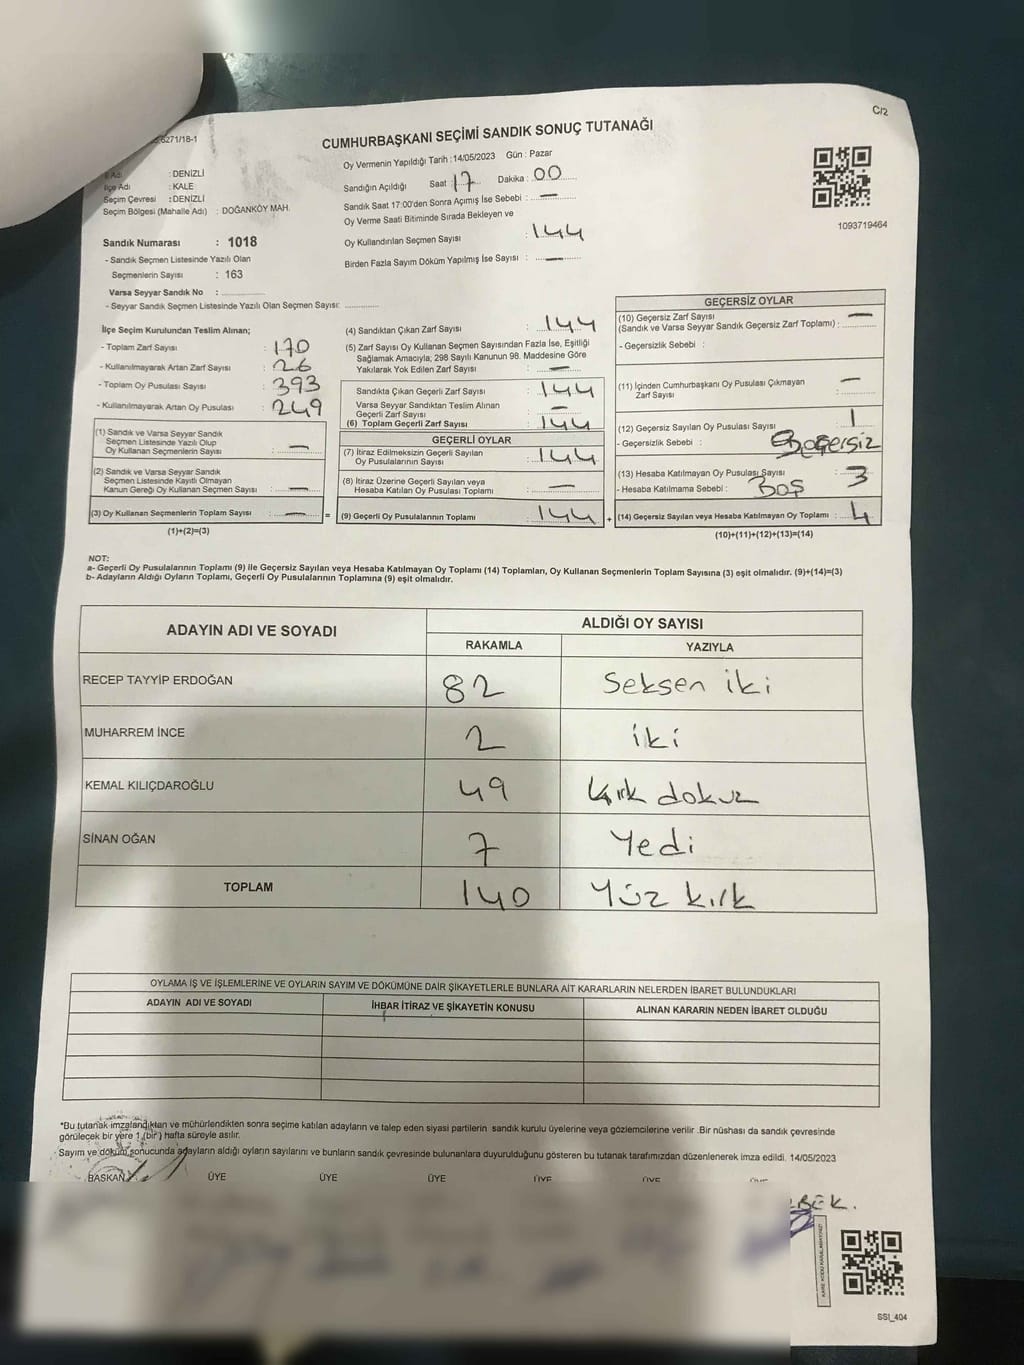 C/2
6271/18-1
CUMHURBAŞKANI SEÇİMİ SANDIK SONUÇ TUTANAĞI
İl Adı : DENİZLİ
İlçe Adı : KALE
Seçim Çevresi : DENİZLİ
Seçim Bölgesi (Mahalle Adı) : DOĞANKÖY MAH.
Sandık Numarası : 1018
- Sandık Seçmen Listesinde Yazılı Olan
Seçmenlerin Sayısı : 163
Varsa Seyyar Sandık No :
- Seyyar Sandık Seçmen Listesinde Yazılı Olan Seçmen Sayısı:
Oy Vermenin Yapıldığı Tarih : 14/05/2023 Gün : Pazar
Sandığın Açıldığı Saat : 17 Dakika : 00
Sandık Saat 17:00'den Sonra Açımış İse Sebebi : —
Oy Verme Saati Bitiminde Sırada Bekleyen ve
Oy Kullandırılan Seçmen Sayısı : 144
Birden Fazla Sayım Döküm Yapılmış İse Sayısı : —
1093719464
İlçe Seçim Kurulundan Teslim Alınan;
- Toplam Zarf Sayısı : 170
- Kullanılmayarak Artan Zarf Sayısı : 26
- Toplam Oy Pusulası Sayısı : 393
- Kullanılmayarak Artan Oy Pusulası : 249
(1) Sandık ve Varsa Seyyar Sandık
Seçmen Listesinde Yazılı Olup
Oy Kullanan Seçmenlerin Sayısı : —
(2) Sandık ve Varsa Seyyar Sandık
Seçmen Listesinde Kayıtlı Olmayan
Kanun Gereği Oy Kullanan Seçmen Sayısı : —
(3) Oy Kullanan Seçmenlerin Toplam Sayısı : — =
(1)+(2)=(3)
(4) Sandıktan Çıkan Zarf Sayısı : 144
(5) Zarf Sayısı Oy Kullanan Seçmen Sayısından Fazla İse, Eşitliği
Sağlamak Amacıyla; 298 Sayılı Kanunun 98. Maddesine Göre
Yakılarak Yok Edilen Zarf Sayısı : —
Sandıkta Çıkan Geçerli Zarf Sayısı : 144
Varsa Seyyar Sandıktan Teslim Alınan
Geçerli Zarf Sayısı : —
(6) Toplam Geçerli Zarf Sayısı : 144
GEÇERLİ OYLAR
(7) İtiraz Edilmeksizin Geçerli Sayılan
Oy Pusulalarının Sayısı : 144
(8) İtiraz Üzerine Geçerli Sayılan veya
Hesaba Katılan Oy Pusulası Toplamı : —
(9) Geçerli Oy Pusulalarının Toplamı : 144 +
GEÇERSİZ OYLAR
(10) Geçersiz Zarf Sayısı —
(Sandık ve Varsa Seyyar Sandık Geçersiz Zarf Toplamı) :
- Geçersizlik Sebebi :
(11) İçinden Cumhurbaşkanı Oy Pusulası Çıkmayan
Zarf Sayısı : —
(12) Geçersiz Sayılan Oy Pusulası Sayısı : 1
- Geçersizlik Sebebi : Geçersiz
(13) Hesaba Katılmayan Oy Pusulası Sayısı : 3
- Hesaba Katılmama Sebebi : Boş
(14) Geçersiz Sayılan veya Hesaba Katılmayan Oy Toplamı : 4
(10)+(11)+(12)+(13)=(14)
NOT:
a- Geçerli Oy Pusulalarının Toplamı (9) ile Geçersiz Sayılan veya Hesaba Katılmayan Oy Toplamı (14) Toplamları, Oy Kullanan Seçmenlerin Toplam Sayısına (3) eşit olmalıdır. (9)+(14)=(3)
b- Adayların Aldığı Oyların Toplamı, Geçerli Oy Pusulalarının Toplamına (9) eşit olmalıdır.
ADAYIN ADI VE SOYADI ALDIĞI OY SAYISI
RAKAMLA YAZIYLA
RECEP TAYYİP ERDOĞAN 82 Seksen iki
MUHARREM İNCE 2 iki
KEMAL KILIÇDAROĞLU 49 Kırk dokuz
SİNAN OĞAN 7 Yedi
TOPLAM 140 Yüz kırk
OYLAMA İŞ VE İŞLEMLERİNE VE OYLARIN SAYIM VE DÖKÜMÜNE DAİR ŞİKAYETLERLE BUNLARA AİT KARARLARIN NELERDEN İBARET BULUNDUKLARI
ADAYIN ADI VE SOYADI İHBAR İTİRAZ VE ŞİKAYETİN KONUSU ALINAN KARARIN NEDEN İBARET OLDUĞU
*Bu tutanak imzalandıktan ve mühürlendikten sonra seçime katılan adayların ve talep eden siyasi partilerin sandık kurulu üyelerine veya gözlemcilerine verilir .Bir nüshası da sandık çevresinde
görülecek bir yere 1 (bir) hafta süreyle asılır.
Sayım ve döküm sonucunda adayların aldığı oyların sayılarını ve bunların sandık çevresinde bulunanlara duyurulduğunu gösteren bu tutanak tarafımızdan düzenlenerek imza edildi. 14/05/2023
BAŞKAN ÜYE ÜYE ÜYE ÜYE ÜYE
SSI_404